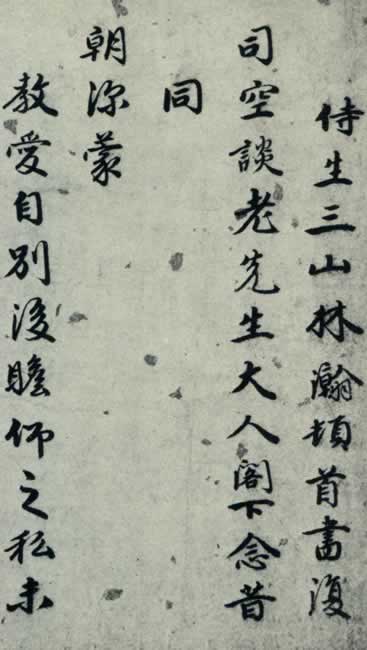 侍生三山林瀚頓首書復
司空談老先生大人閣下念昔
同
朝深蒙
教愛自別後瞻仰之私未